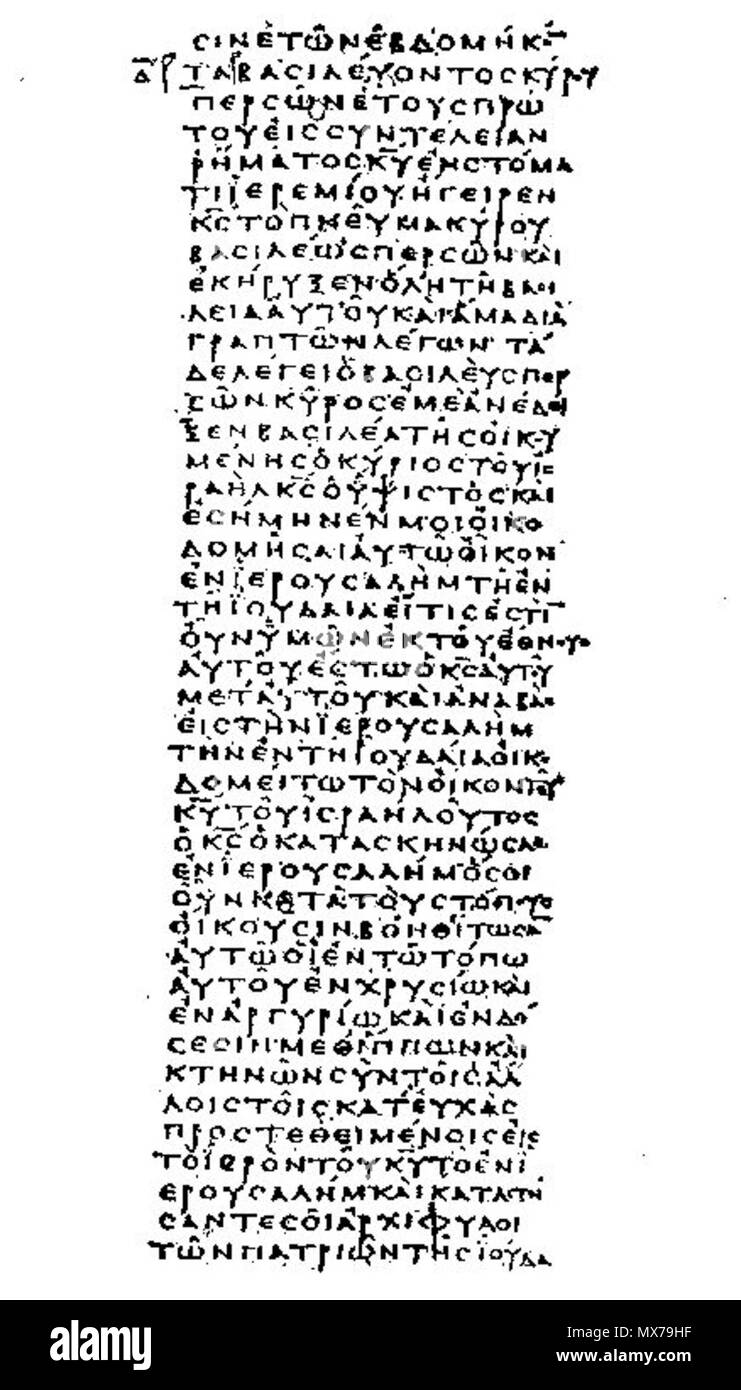 ϹΙΝΕΤΩΝΕΒΔΟΜΗΚ
Δ ΤΑΒΑϹΙΛΕΥΟΝΤΟϹΚΥΡΥ
ΠΕΡϹΩΝΕΤΟΥϹΠΡΩ
ΤΟΥΕΙϹϹΥΝΤΕΛΕΙΑΝ
ΡΗΜΑΤΟϹΚΥΕΝϹΤΟΜΑ
ΤΙΙΕΡΕΜΙΟΥΗΓΕΙΡΕΝ
ΚϹΤΟΠΝΕΥΜΑΚΥΡΟΥ
ΒΑϹΙΛΕΩϹΠΕΡϹΩΝΚΑΙ
ΕΚΗΡΥΞΕΝΟΛΗΤΗΒΑϹΙ
ΛΕΙΑΑΥΤΟΥΚΑΙΑΜΑΔΙΑ
ΓΡΑΠΤΩΝΛΕΓΩΝΤΑ
ΔΕΛΕΓΕΙΟΒΑϹΙΛΕΥϹΠΕΡ
ϹΩΝΚΥΡΟϹΕΜΕΑΝΕΔΙ
ΞΕΝΒΑϹΙΛΕΑΤΗϹΟΙΚΟΥ
ΜΕΝΗϹΟΚΥΡΙΟϹΤΟΥΙϹ
ΡΑΗΛΚϹΟΥΨΙϹΤΟϹΚΑΙ
ΕϹΗΜΗΝΕΝΜΟΙΟΙΚΟ
ΔΟΜΗϹΑΙΑΥΤΩΟΙΚΟΝ
ΕΝΙΕΡΟΥϹΑΛΗΜΤΗΕΝ
ΤΗΙΟΥΔΑΙΑΕΙΤΙϹΕϹΤΙ
ΟΥΝΥΜΩΝΕΚΤΟΥΕΘΝΟΥϹ
ΑΥΤΟΥΕϹΤΩΟΚϹΑΥΤΥ
ΜΕΤΑΥΤΟΥΚΑΙΑΝΑΒΑϹ
ΕΙϹΤΗΝΪΕΡΟΥϹΑΛΗΜ
ΤΗΝΕΝΤΗΙΟΥΔΑΙΑΟΙΚΟ
ΔΟΜΕΙΤΩΤΟΝΟΙΚΟΝΤΟΥ
ΚΥΤΟΥΙϹΡΑΗΛΟΥΤΟϹ
ΟΚϹΟΚΑΤΑϹΚΗΝΩϹΑϹ
ΕΝΙΕΡΟΥϹΑΛΗΜΟϹΟΙ
ΟΥΝΚΕΤΑΤΟΥϹΤΟΠΟΥϹ
ΟΙΚΟΥϹΙΝΒΟΗΘΙΤΩϹΑ
ΑΥΤΩΟΙΕΝΤΩΤΟΠΩ
ΑΥΤΟΥΕΝΧΡΥϹΙΩΚΑΙ
ΕΝΑΡΓΥΡΙΩΚΑΙΕΝΔΟ
ϹΕϹΙΝΜΕΘΙΠΠΩΝΚΑΙ
ΚΤΗΝΩΝϹΥΝΤΟΙϹΑΛ
ΛΟΙϹΤΟΙϹΚΑΤΕΥΧΑϹ
ΠΡΟϹΤΕΘΕΙΜΕΝΟΙϹΕΙϹ
ΤΟΙΕΡΟΝΤΟΥΚΥΤΟΕΝΙ
ΕΡΟΥϹΑΛΗΜΚΑΙΚΑΤΑϹΤΗ
ϹΑΝΤΕϹΟΙΑΡΧΙΦΥΛΟΙ
ΤΩΝΠΑΤΡΙΩΝΤΗϹΙΟΥΔΑ
alamy
Image ID: MX79HF
www.alamy.com